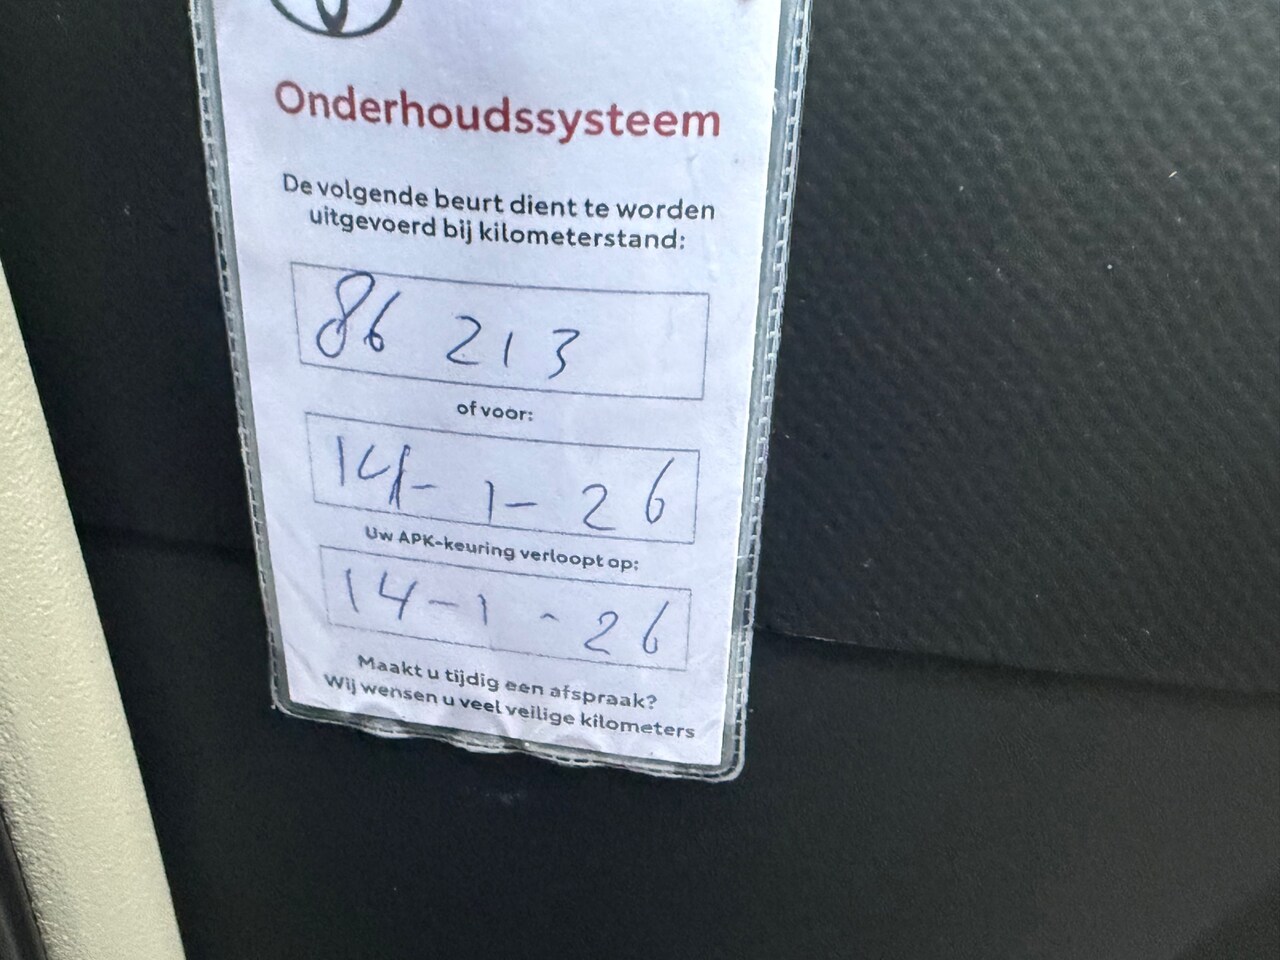 Onderhoudssysteem
De volgende beurt dient te worden
uitgevoerd bij kilometerstand:
86 213
of voor:
14-1-26
Uw APK-keuring verloopt op:
14-1-26
Maakt u tijdig een afspraak?
Wij wensen u veel veilige kilometers